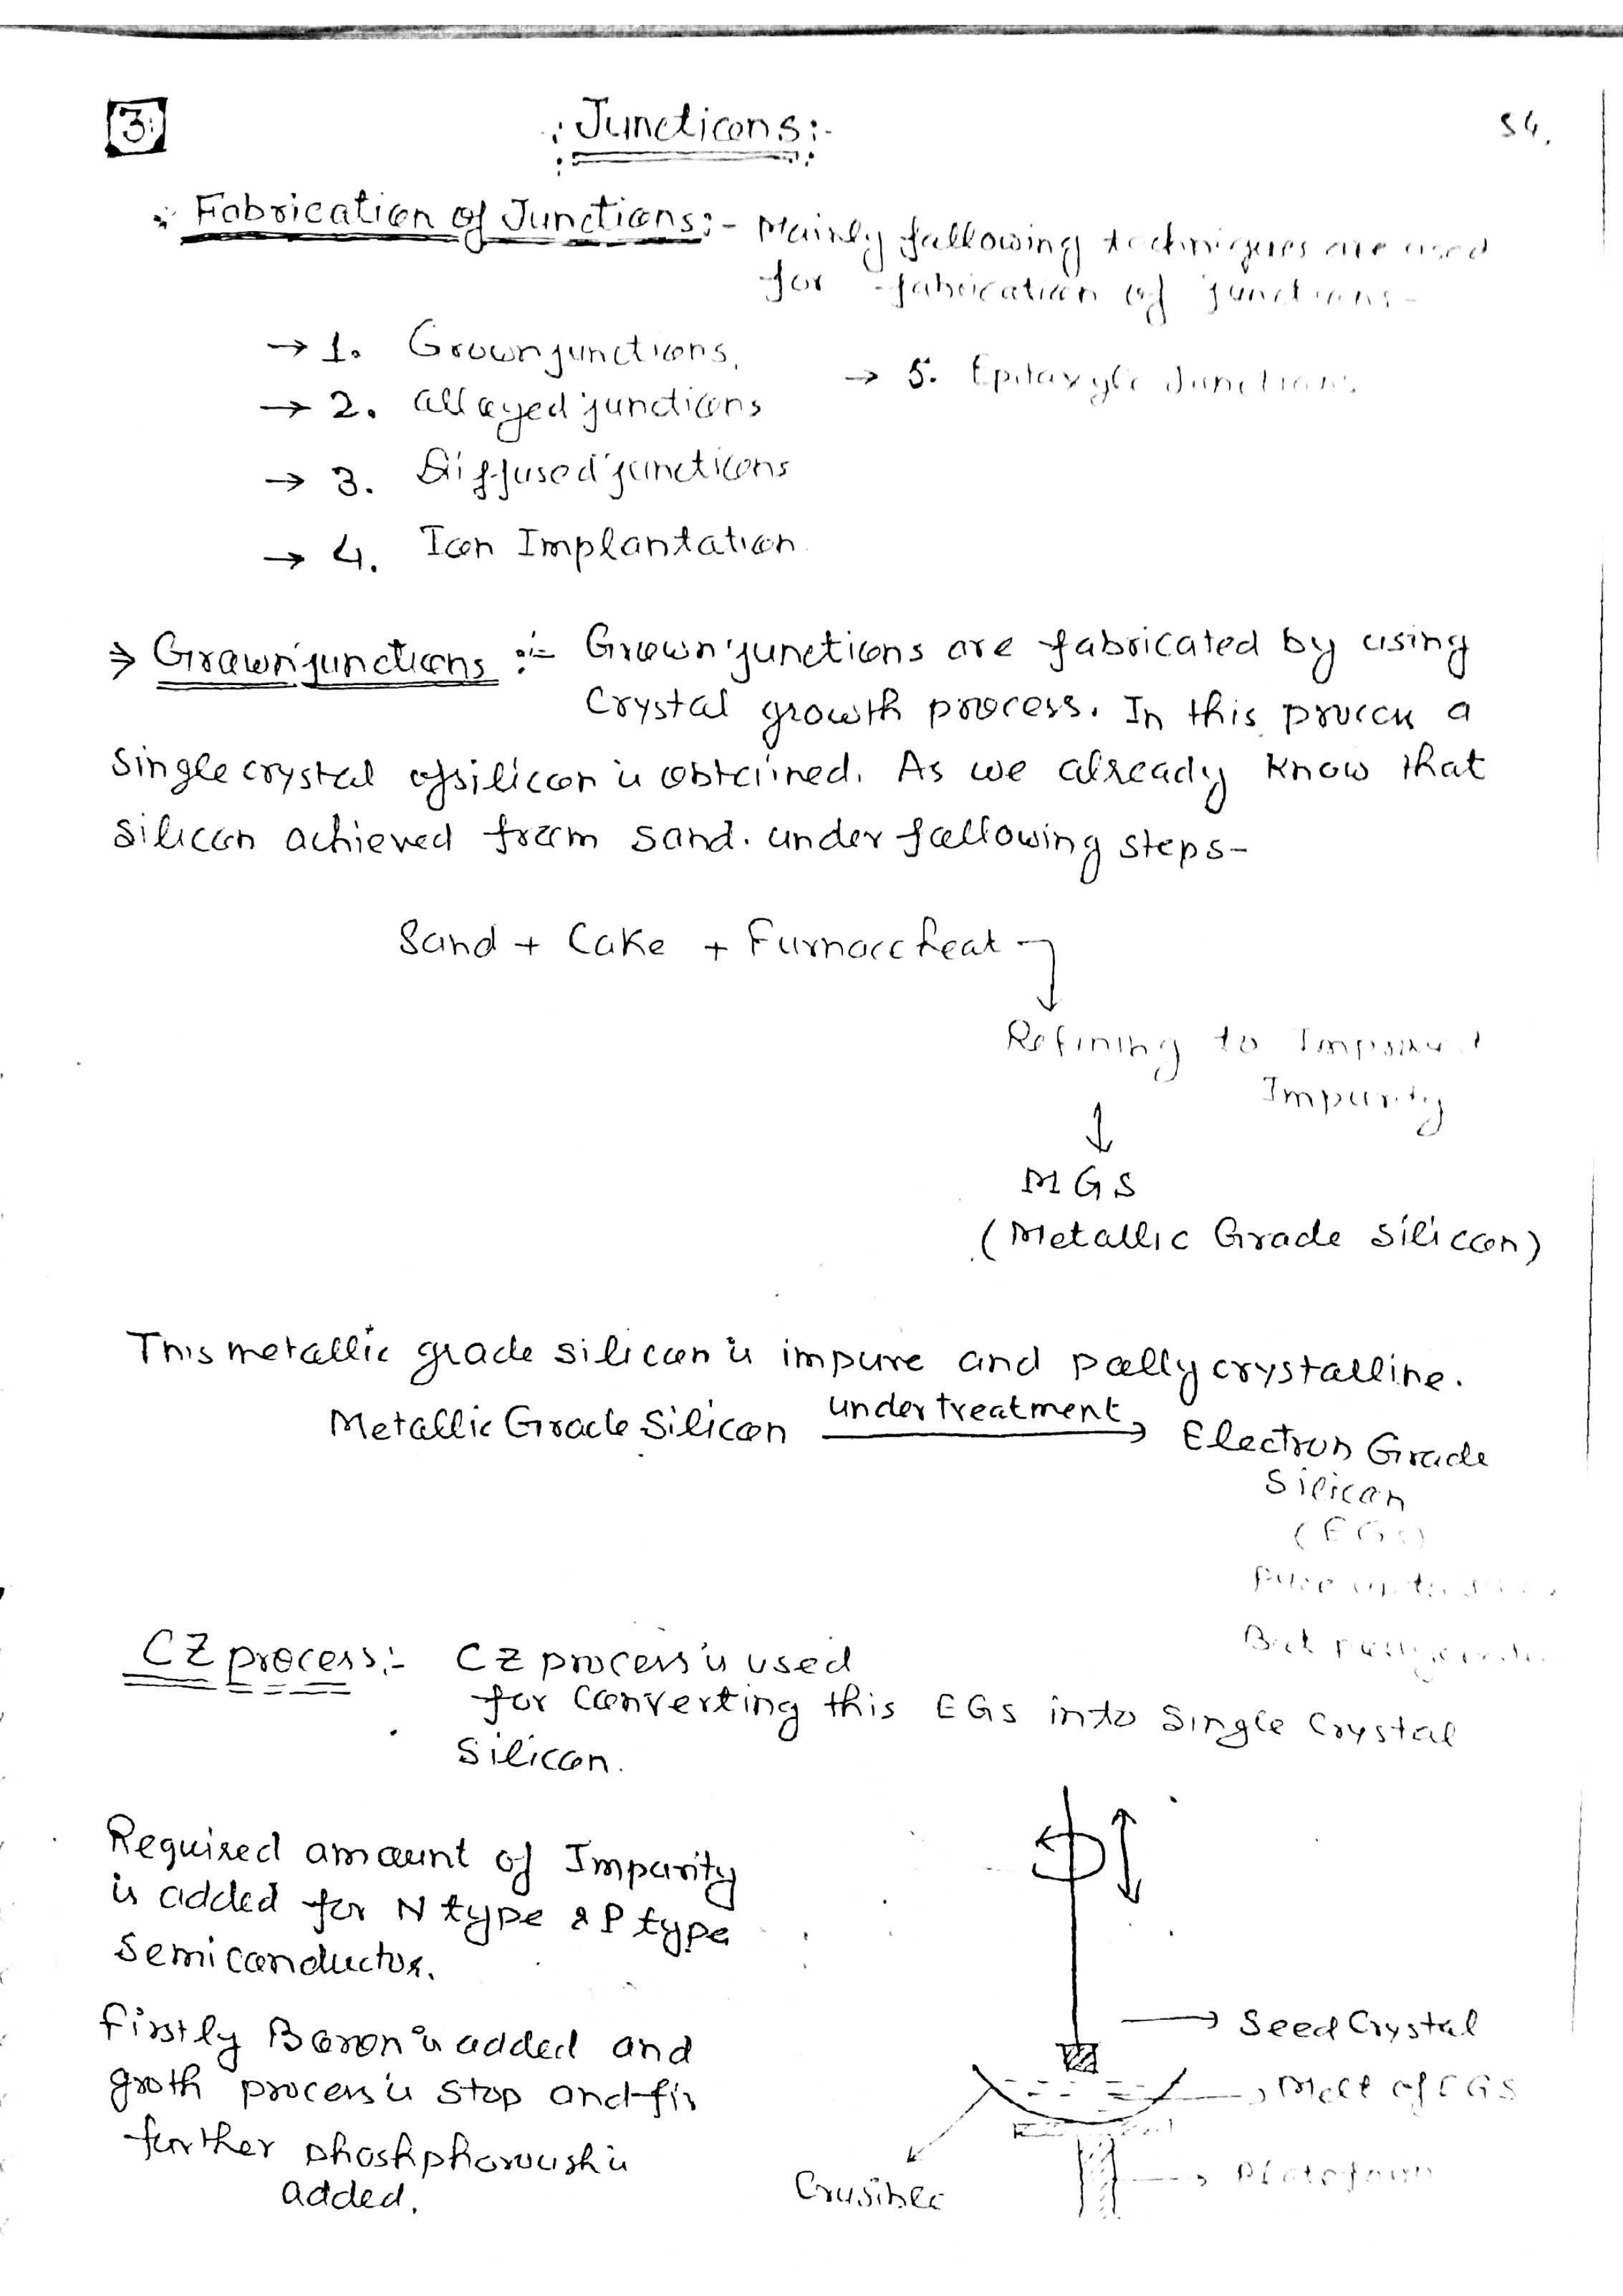 3.
:Junctions:-
54.
:. Fabrication of Junctions:- Mainly following techniques are used
for fabrication of junctions-
→ 1. Grown junctions.
→ 5. Epitaxyle Junctions.
→ 2. alloyed junctions
→ 3. Diffused junctions
→ 4. Ion Implantation.
⇒ Grown junctions :- Grown junctions are fabricated by using
Crystal growth process. In this process a
single crystal of silicon is obtained. As we already know that
silicon achieved from sand. under following steps-
Sand + Cake + Furnace heat
Refining to
Impurity
MGS
(Metallic Grade Silicon)
This metallic grade silicon is impure and polly crystalline.
Metallic Grade Silicon under treatment → Electron Grade
Silicon
(EGS)
Pure
But
CZ process:- CZ process is used
for converting this EGS into Single Crystal
Silicon.
Required amount of Impurity
is added for N type & P type
Semiconductor.
firstly Boron is added and
groth process is stop and fir
further phoshphoroush is
added.
→ Seed Crystal
→ Melt of EGS
→ Platoform
Crusible